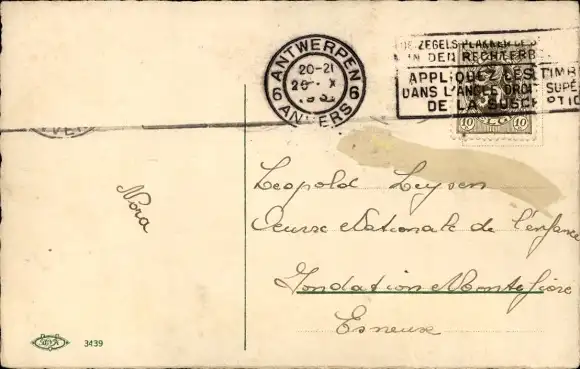 ANTWERPEN
6 6
20-21
X
ANVERS
DE ZEGELS PLAKKEN
IN DEN RECHTER
APPLIQUEZ LES TIMBR
DANS L'ANGLE DROI SUPÉ
DE LA SUSC PTIO
10 10
Nora
Leopold Leysen
Oeuvre Nationale de l'enfance
Fondation Montefiore
Esneux
3439